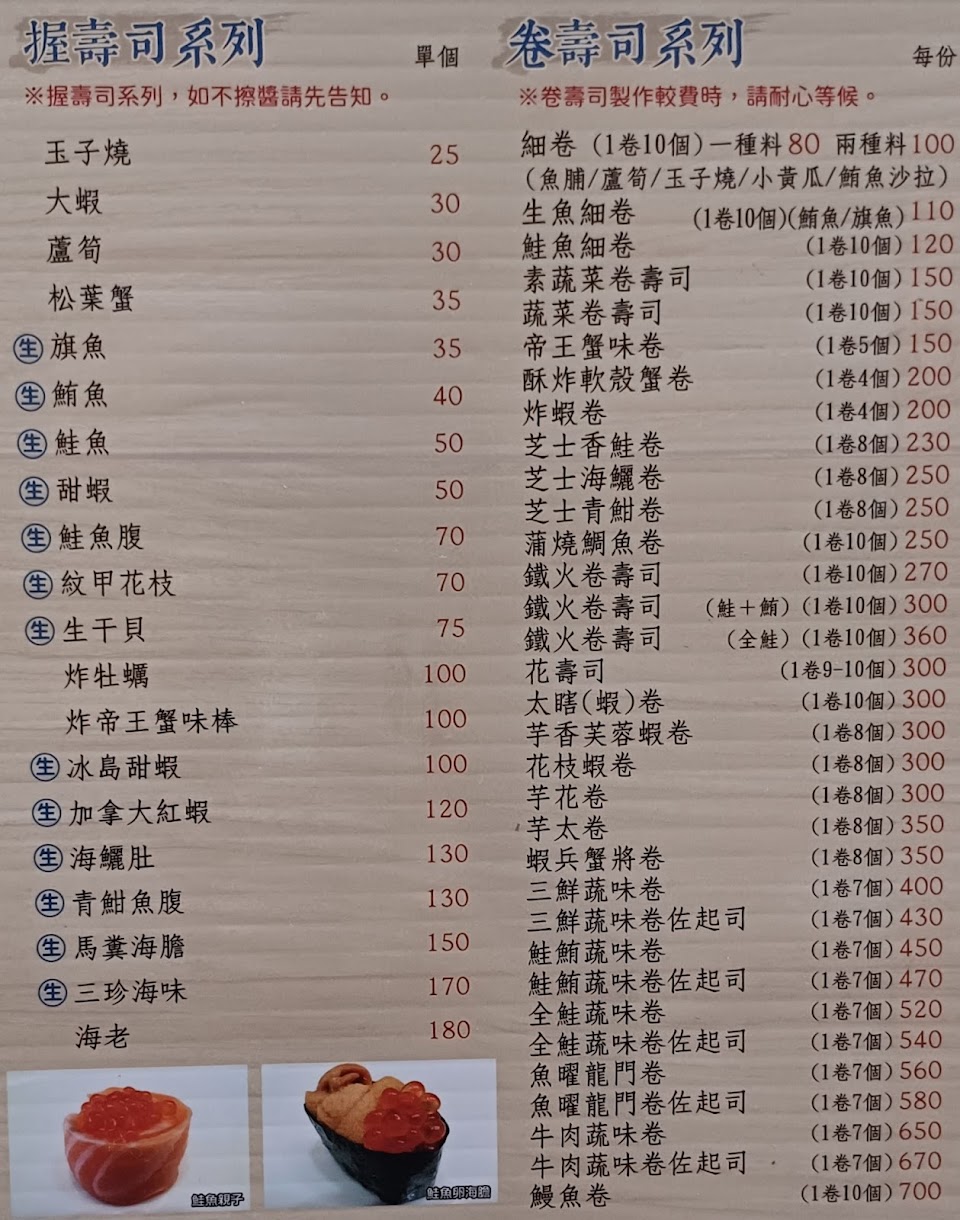 握壽司系列 單個
※握壽司系列，如不擦醬請先告知。
玉子燒 25
大蝦 30
蘆筍 30
松葉蟹 35
生 旗魚 35
生 鮪魚 40
生 鮭魚 50
生 甜蝦 50
生 鮭魚腹 70
生 紋甲花枝 70
生 生干貝 75
炸牡蠣 100
炸帝王蟹味棒 100
生 冰島甜蝦 100
生 加拿大紅蝦 120
生 海鱺肚 130
生 青魽魚腹 130
生 馬糞海膽 150
生 三珍海味 170
海老 180
鮭魚親子
鮭魚卵海膽
卷壽司系列 每份
※卷壽司製作較費時，請耐心等候。
細卷（1卷10個）一種料80 兩種料100
（魚脯/蘆筍/玉子燒/小黃瓜/鮪魚沙拉）
生魚細卷 （1卷10個）（鮪魚/旗魚）110
鮭魚細卷 （1卷10個）120
素蔬菜卷壽司 （1卷10個）150
蔬菜卷壽司 （1卷10個）150
帝王蟹味卷 （1卷5個）150
酥炸軟殼蟹卷 （1卷4個）200
炸蝦卷 （1卷4個）200
芝士香鮭卷 （1卷8個）230
芝士海鱺卷 （1卷8個）250
芝士青魽卷 （1卷8個）250
蒲燒鯛魚卷 （1卷10個）250
鐵火卷壽司 （1卷10個）270
鐵火卷壽司 （鮭＋鮪）（1卷10個）300
鐵火卷壽司 （全鮭）（1卷10個）360
花壽司 （1卷9-10個）300
太瞎(蝦)卷 （1卷10個）300
芋香芙蓉蝦卷 （1卷8個）300
花枝蝦卷 （1卷8個）300
芋花卷 （1卷8個）300
芋太卷 （1卷8個）350
蝦兵蟹將卷 （1卷8個）350
三鮮蔬味卷 （1卷7個）400
三鮮蔬味卷佐起司 （1卷7個）430
鮭鮪蔬味卷 （1卷7個）450
鮭鮪蔬味卷佐起司 （1卷7個）470
全鮭蔬味卷 （1卷7個）520
全鮭蔬味卷佐起司 （1卷7個）540
魚曜龍門卷 （1卷7個）560
魚曜龍門卷佐起司 （1卷7個）580
牛肉蔬味卷 （1卷7個）650
牛肉蔬味卷佐起司 （1卷7個）670
鰻魚卷 （1卷10個）700